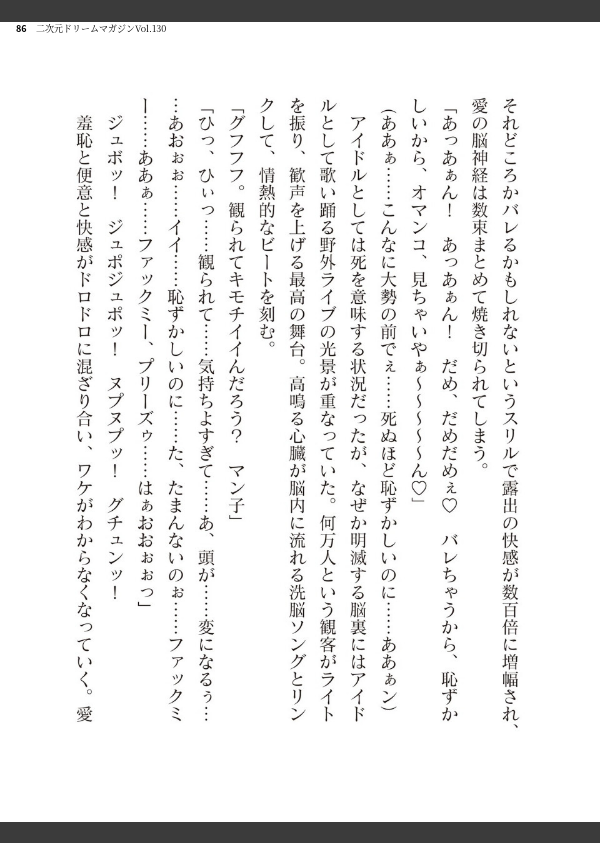 86 二次元ドリームマガジンVol.130
それどころかバレるかもしれないというスリルで露出の快感が数百倍に増幅され、
愛の脳神経は数束まとめて焼き切られてしまう。
「あっあぁん！　あっあぁん！　だめ、だめだめぇ♡　バレちゃうから、恥ずか
しいから、オマンコ、見ちゃいやぁ〜〜〜〜〜〜ん♡」
(ああぁ……こんなに大勢の前でぇ……死ぬほど恥ずかしいのに……ああぁン)
アイドルとしては死を意味する状況だったが、なぜか明滅する脳裏にはアイド
ルとして歌い踊る野外ライブの光景が重なっていた。何万人という観客がライト
を振り、歓声を上げる最高の舞台。高鳴る心臓が脳内に流れる洗脳ソングとリン
クして、情熱的なビートを刻む。
「グフフフ。観られてキモチイイんだろう？　マン子」
「ひっ、ひぃっ……観られて……気持ちよすぎて……あ、頭が……変になるぅ…
…あおぉぉ……イイ……恥ずかしいのに……た、たまんないのぉ……ファックミ
ー……ああぁ……ファックミー、プリーズゥ……はぁおおぉぉっ」
ジュボッ！　ジュポジュポッ！　ヌプヌプッ！　グチュンッ！
羞恥と便意と快感がドロドロに混ざり合い、ワケがわからなくなっていく。愛